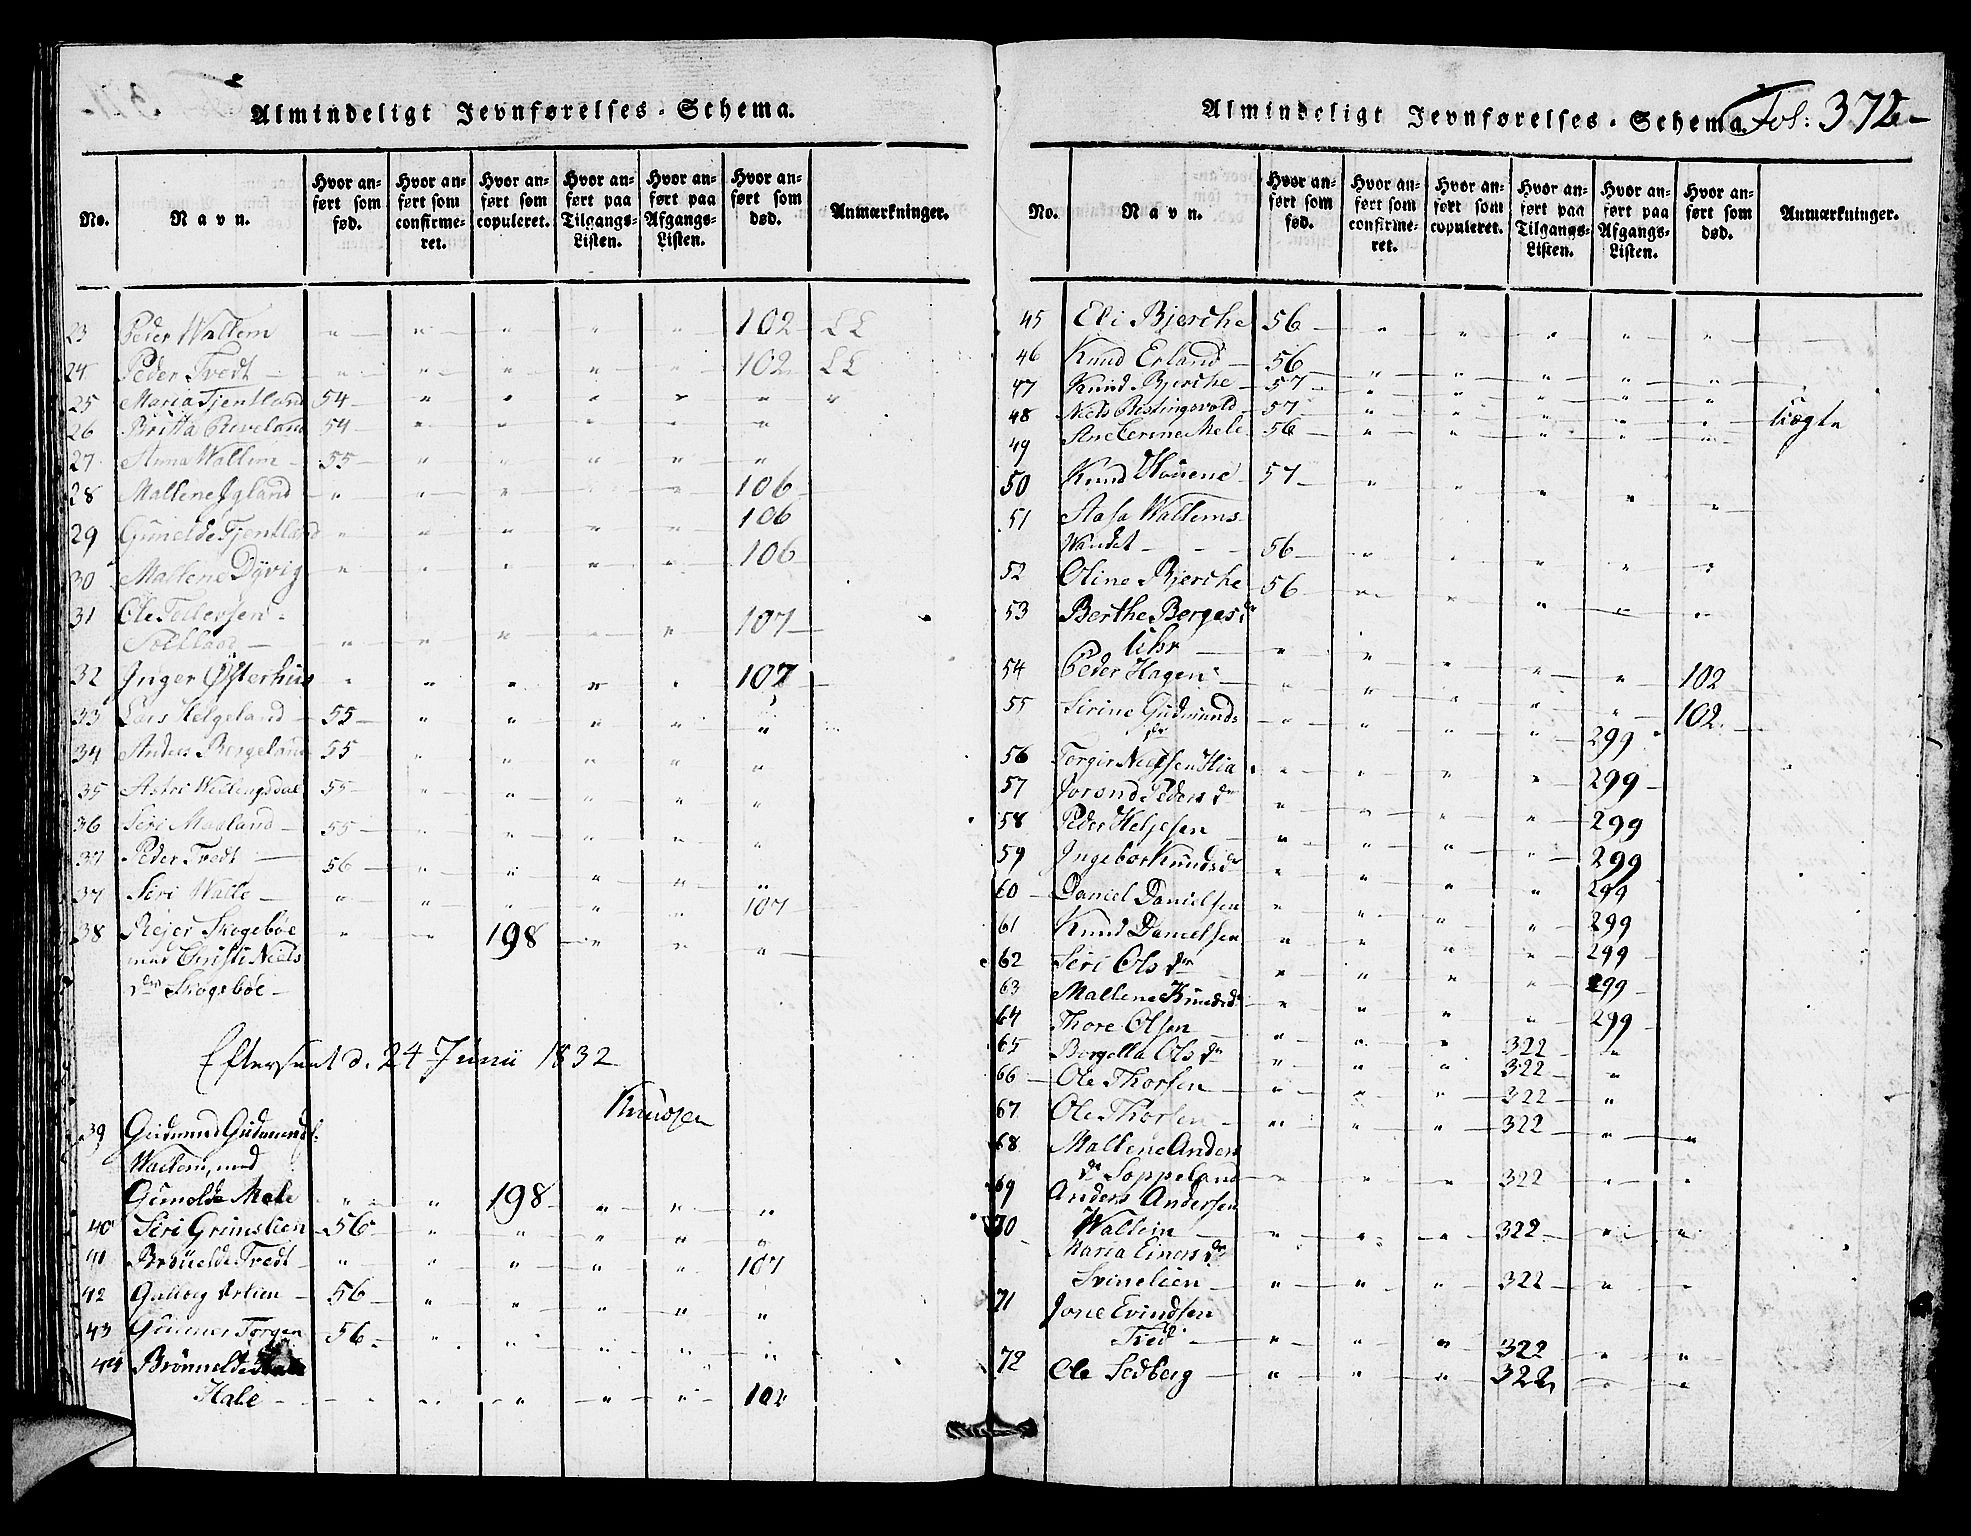 Almindeligt Jevnførelses-Schema.
No. Navn. Hvor anført som fød. Hvor anført som confirmeret. Hvor anført som copuleret. Hvor anført paa Tilgangs-Listen. Hvor anført paa Afgangs-Listen. Hvor anført som død. Anmærkninger.
23 Peder Wattem " " " " " 102 L L
24 Peder Tredt " " " " " 102 L L
25 Maria Tjentland 54 " " " " " "
26 Britta 54 " " " " "
27 Anna Wattem 55 " " " " "
28 Mallene Igland " " " " " 106
29 Gunelde Tjentland " " " " " 106
30 Mallene Dyvig " " " " " 106
31 Ole Tollersen
" " " " " 107
32 Inger Østerhus " " " " " 107
33 Lars Helgeland 55 " " " " "
34 Anders Bergeland 55 " " " " "
35 Astri 55 " " " " "
36 Siri Maaland 55 " " " " "
37 Peder Tredt 56 " " " " "
37 Siri Walle " " " " " 107
38 Rejer Skogebøe " " 198 " " "
med Christi Niels
dr Skogebøe
Eftersent d. 24 Junii 1832
Knudsen
39 Gudmund Gudmunds.
Wattem, med
Gunelde Mele " " 198 " " "
40 Siri Grimslien 56 " " " " "
41 Brönelde Tredt " " " " " 107
42 56 " " " " "
43 Gunner Torgen 56 " " " " "
44 Brönnelde
Hale " " " " " 102
Almindeligt Jevnførelses-Schema. Fol: 372
No. Navn. Hvor anført som fød. Hvor anført som confirmeret. Hvor anført som copuleret. Hvor anført paa Tilgangs-Listen. Hvor anført paa Afgangs-Listen. Hvor anført som død. Anmærkninger.
45 Eli Bjerche 56 " " " " "
46 Knud Erland 56 " " " " "
47 Knud Bjerche 57 " " " " "
48 Niels 57 " " " " "
49 Mele 56 " " " " "
50 Knud 57 " " " " "
51 Wattems
Vandet 56 " " " " "
52 Oline Bjerche 56 " " " " "
53 Berthe Borgesdr
" " " " " 102
54 Peder Hagen " " " " " 102
55 Sirine Gudmunds
dr " " " " 299
56 Torgir Nielsen " " " " 299
57 Jorond Peders dr " " " " 299
58 Peder Helgesen " " " " 299
59 Ingebor Knudsdr " " " " 299
60 Daniel Danielsen " " " " 299
61 Knud Danielsen " " " " 299
62 Siri Ols dr " " " " 299
63 Mallene Knudsdr " " " " 299
64 Thore Olsen " " " 322 "
65 Borgella Ols dr " " " 322 "
66 Ole Thorsen " " " 322 "
67 Ole Thorsen " " " 322 " "
68 Mallene Anders
dr Soppeland " " " 322 " "
69 Anders Andersen
70 Wattem " " " 322 " "
Maria Einers dr
Svinelien " " " 322 " "
71 Jone Evindsen
Tredt " " " 322 " "
72 Ole Sedberg " " " 322 " "